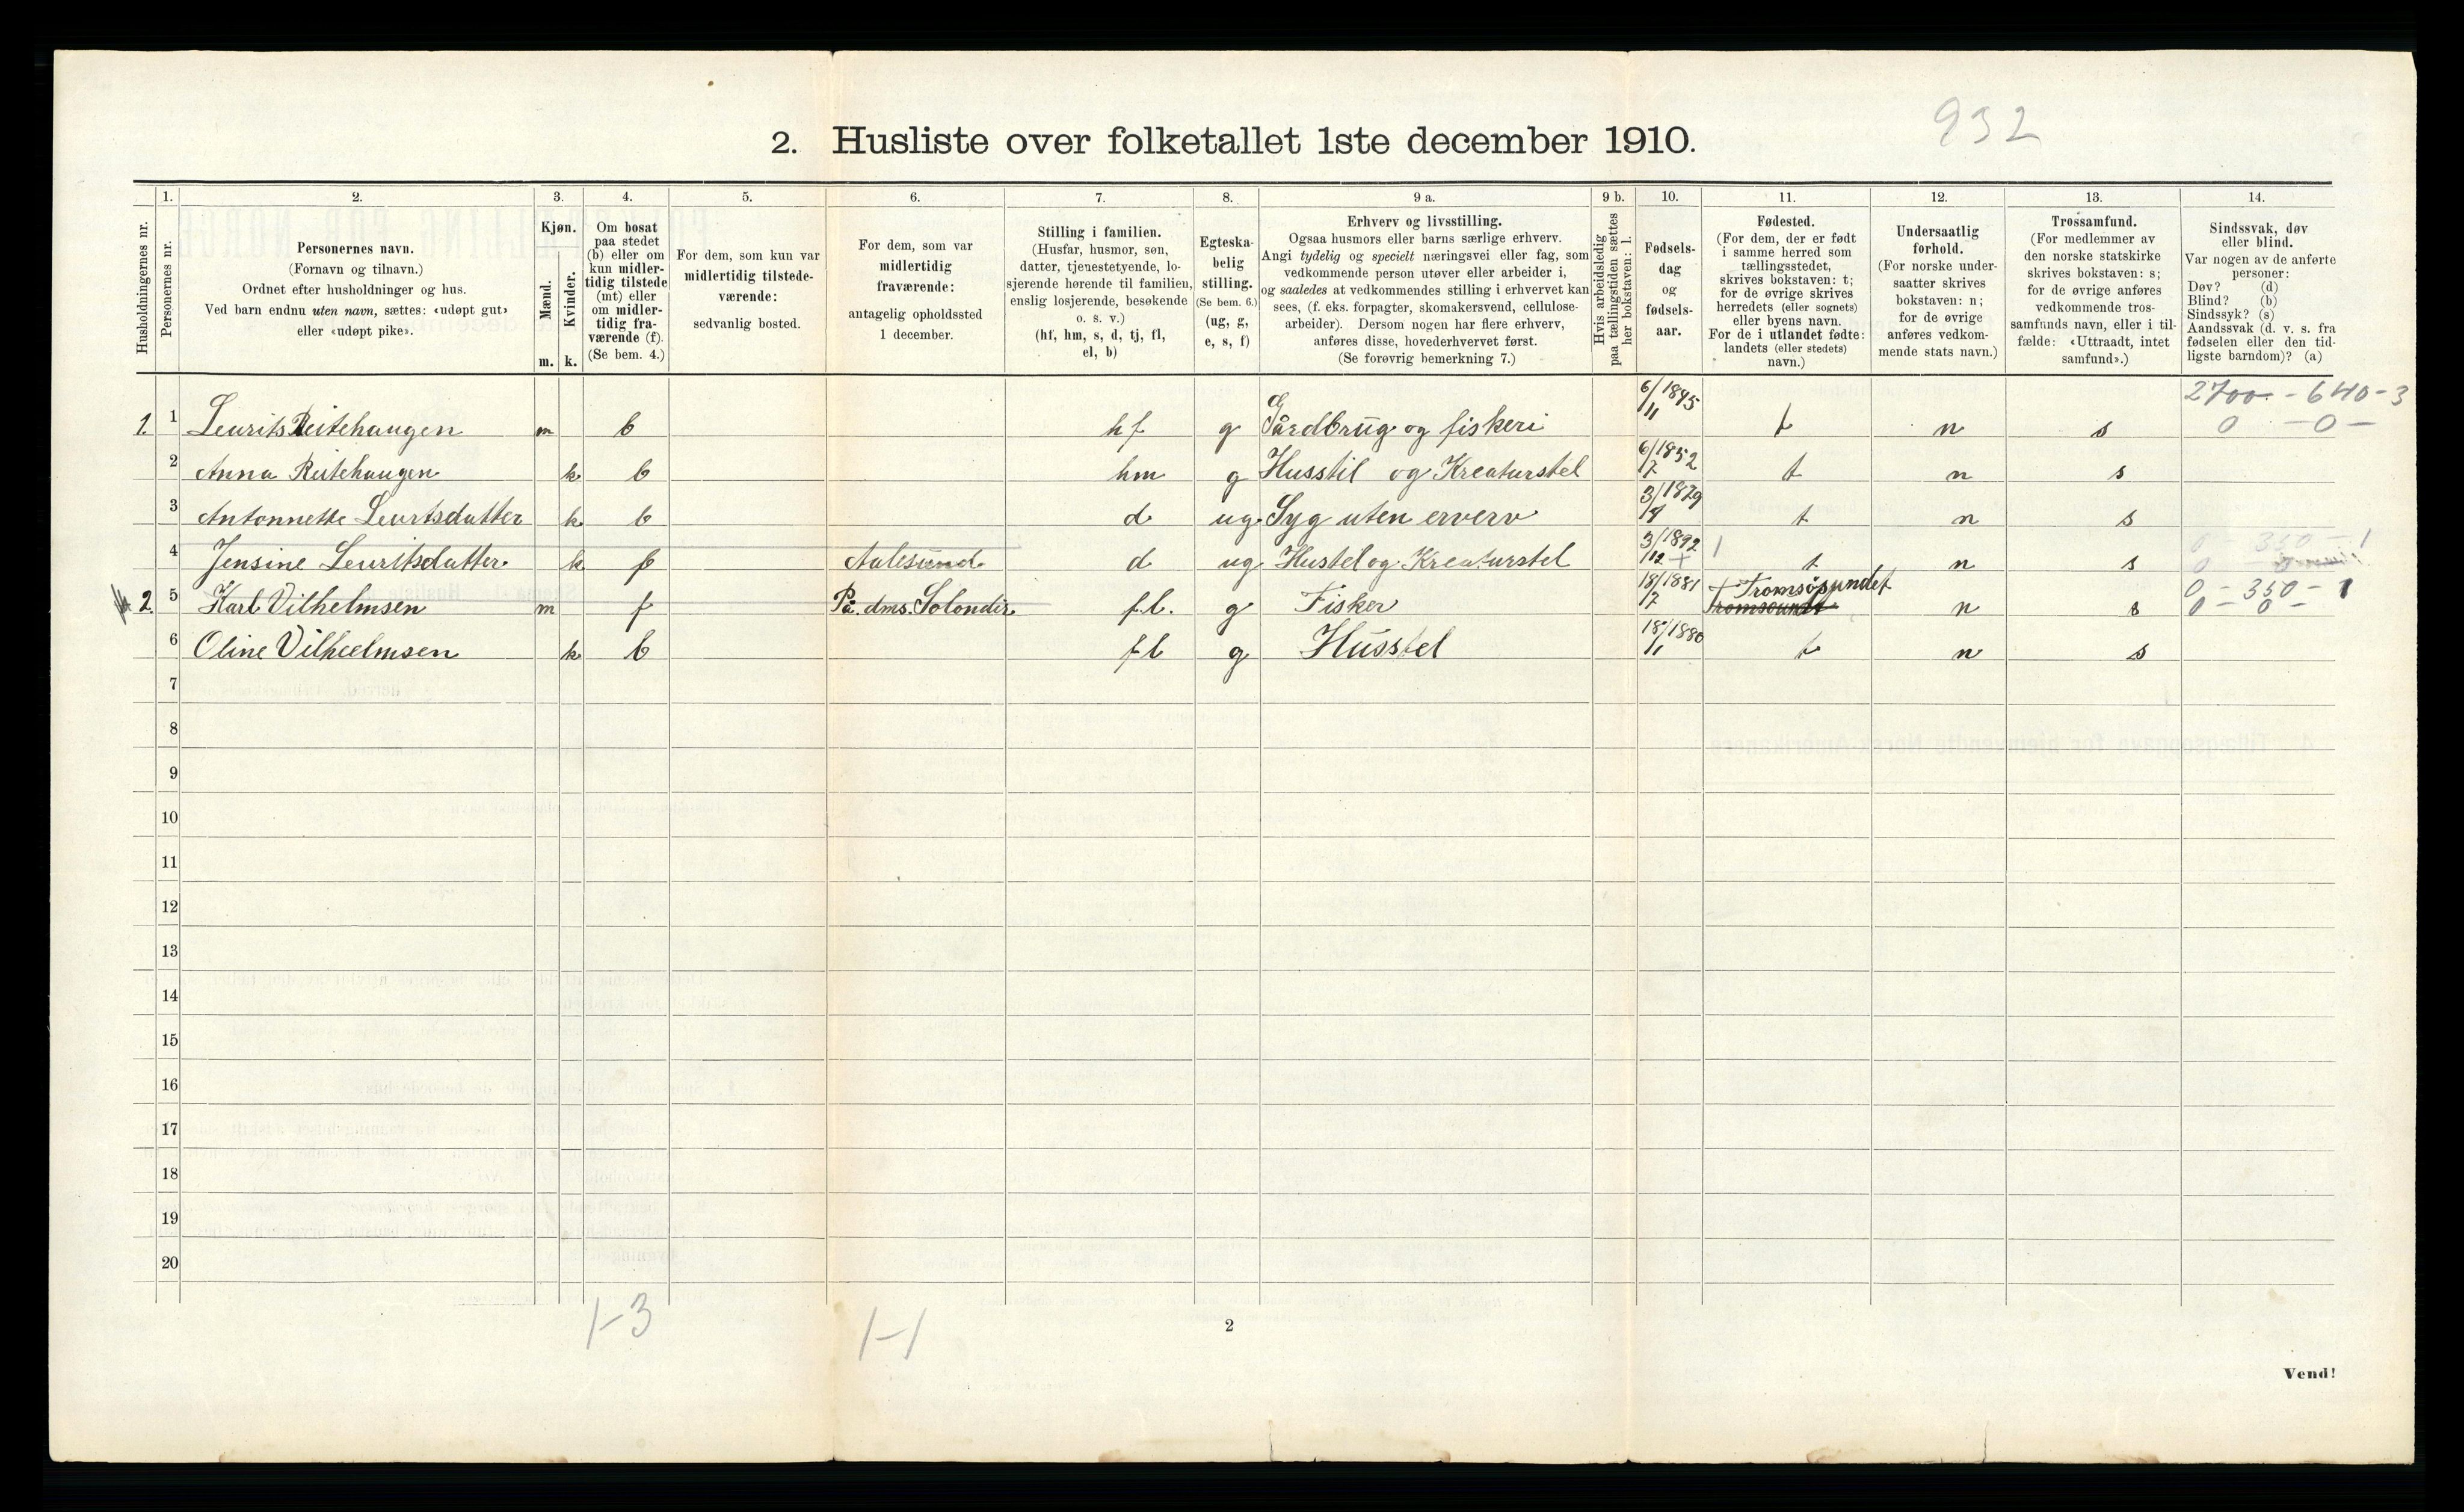 932
2. Husliste over folketallet 1ste december 1910.
Husholdningernes nr.
1. Personernes nr.
2. Personernes navn. (Fornavn og tilnavn.) Ordnet efter husholdninger og hus. Ved barn endnu uten navn, sættes: «udøpt gut» eller «udøpt pike».
3. Kjøn. Mænd. m. Kvinder. k.
4. Om bosat paa stedet (b) eller om kun midlertidig tilstede (mt) eller om midlertidig fraværende (f). (Se bem. 4.)
5. For dem, som kun var midlertidig tilstedeværende: sedvanlig bosted.
6. For dem, som var midlertidig fraværende: antagelig opholdssted 1 december.
7. Stilling i familien. (Husfar, husmor, søn, datter, tjenestetyende, losjerende hørende til familien, enslig losjerende, besøkende o. s. v.) (hf, hm, s, d, tj, fl, el, b)
8. Egteskabelig stilling. (Se bem. 6.) (ug, g, e, s, f)
9 a. Erhverv og livsstilling. Ogsaa husmors eller barns særlige erhverv. Angi tydelig og specielt næringsvei eller fag, som vedkommende person utøver eller arbeider i, og saaledes at vedkommendes stilling i erhvervet kan sees, (f. eks. forpagter, skomakersvend, cellulosearbeider). Dersom nogen har flere erhverv, anføres disse, hovederhvervet først. (Se forøvrig bemerkning 7.)
9 b. Hvis arbeidsledig paa tællingstiden sættes her bokstaven: l.
10. Fødselsdag og fødselsaar.
11. Fødested. (For dem, der er født i samme herred som tællingsstedet, skrives bokstaven: t; for de øvrige skrives herredets (eller sognets) eller byens navn. For de i utlandet fødte: landets (eller stedets) navn.)
12. Undersaatlig forhold. (For norske undersaatter skrives bokstaven: n; for de øvrige anføres vedkommende stats navn.)
13. Trossamfund. (For medlemmer av den norske statskirke skrives bokstaven: s; for de øvrige anføres vedkommende trossamfunds navn, eller i tilfælde: «Uttraadt, intet samfund».)
14. Sindssvak, døv eller blind. Var nogen av de anførte personer: Døv? (d) Blind? (b) Sindssyk? (s) Aandssvak (d. v. s. fra fødselen eller den tidligste barndom)? (a)
2700 - 640 - 3
1. 1 Leurits Reitehaugen m b hf g Gårdbrug og fiskeri 6/11 1845 t n s 0 - 0 -
2 Anna Reitehaugen k b hm g Husstil og Kreaturstel 6/7 1852 t n s
3 Antonnette Leuritsdatter k b d ug Syg uten erverv 3/8 1879 t n s
4 Jensine Leuritsdatter k f Aalesund d ug Hustel og Kreaturstel 3/12 1892 t n s
2. 5 Karl Vilhelmsen m f På dms. Solondir fl. g Fisker 18/7 1881 + Tromsøsundet n s 0 - 350 - 1 0 - 0 -
6 Oline Vilheelmsen k b fl g Husstel 18/1 1880 t n s
7
8
9
10
11
12
13
14
15
16
17
18
19
20
1-3 1-1
2
Vend!